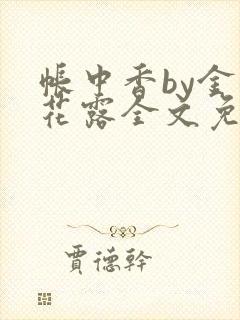 帐中香by金
花露全文免
贾德幹